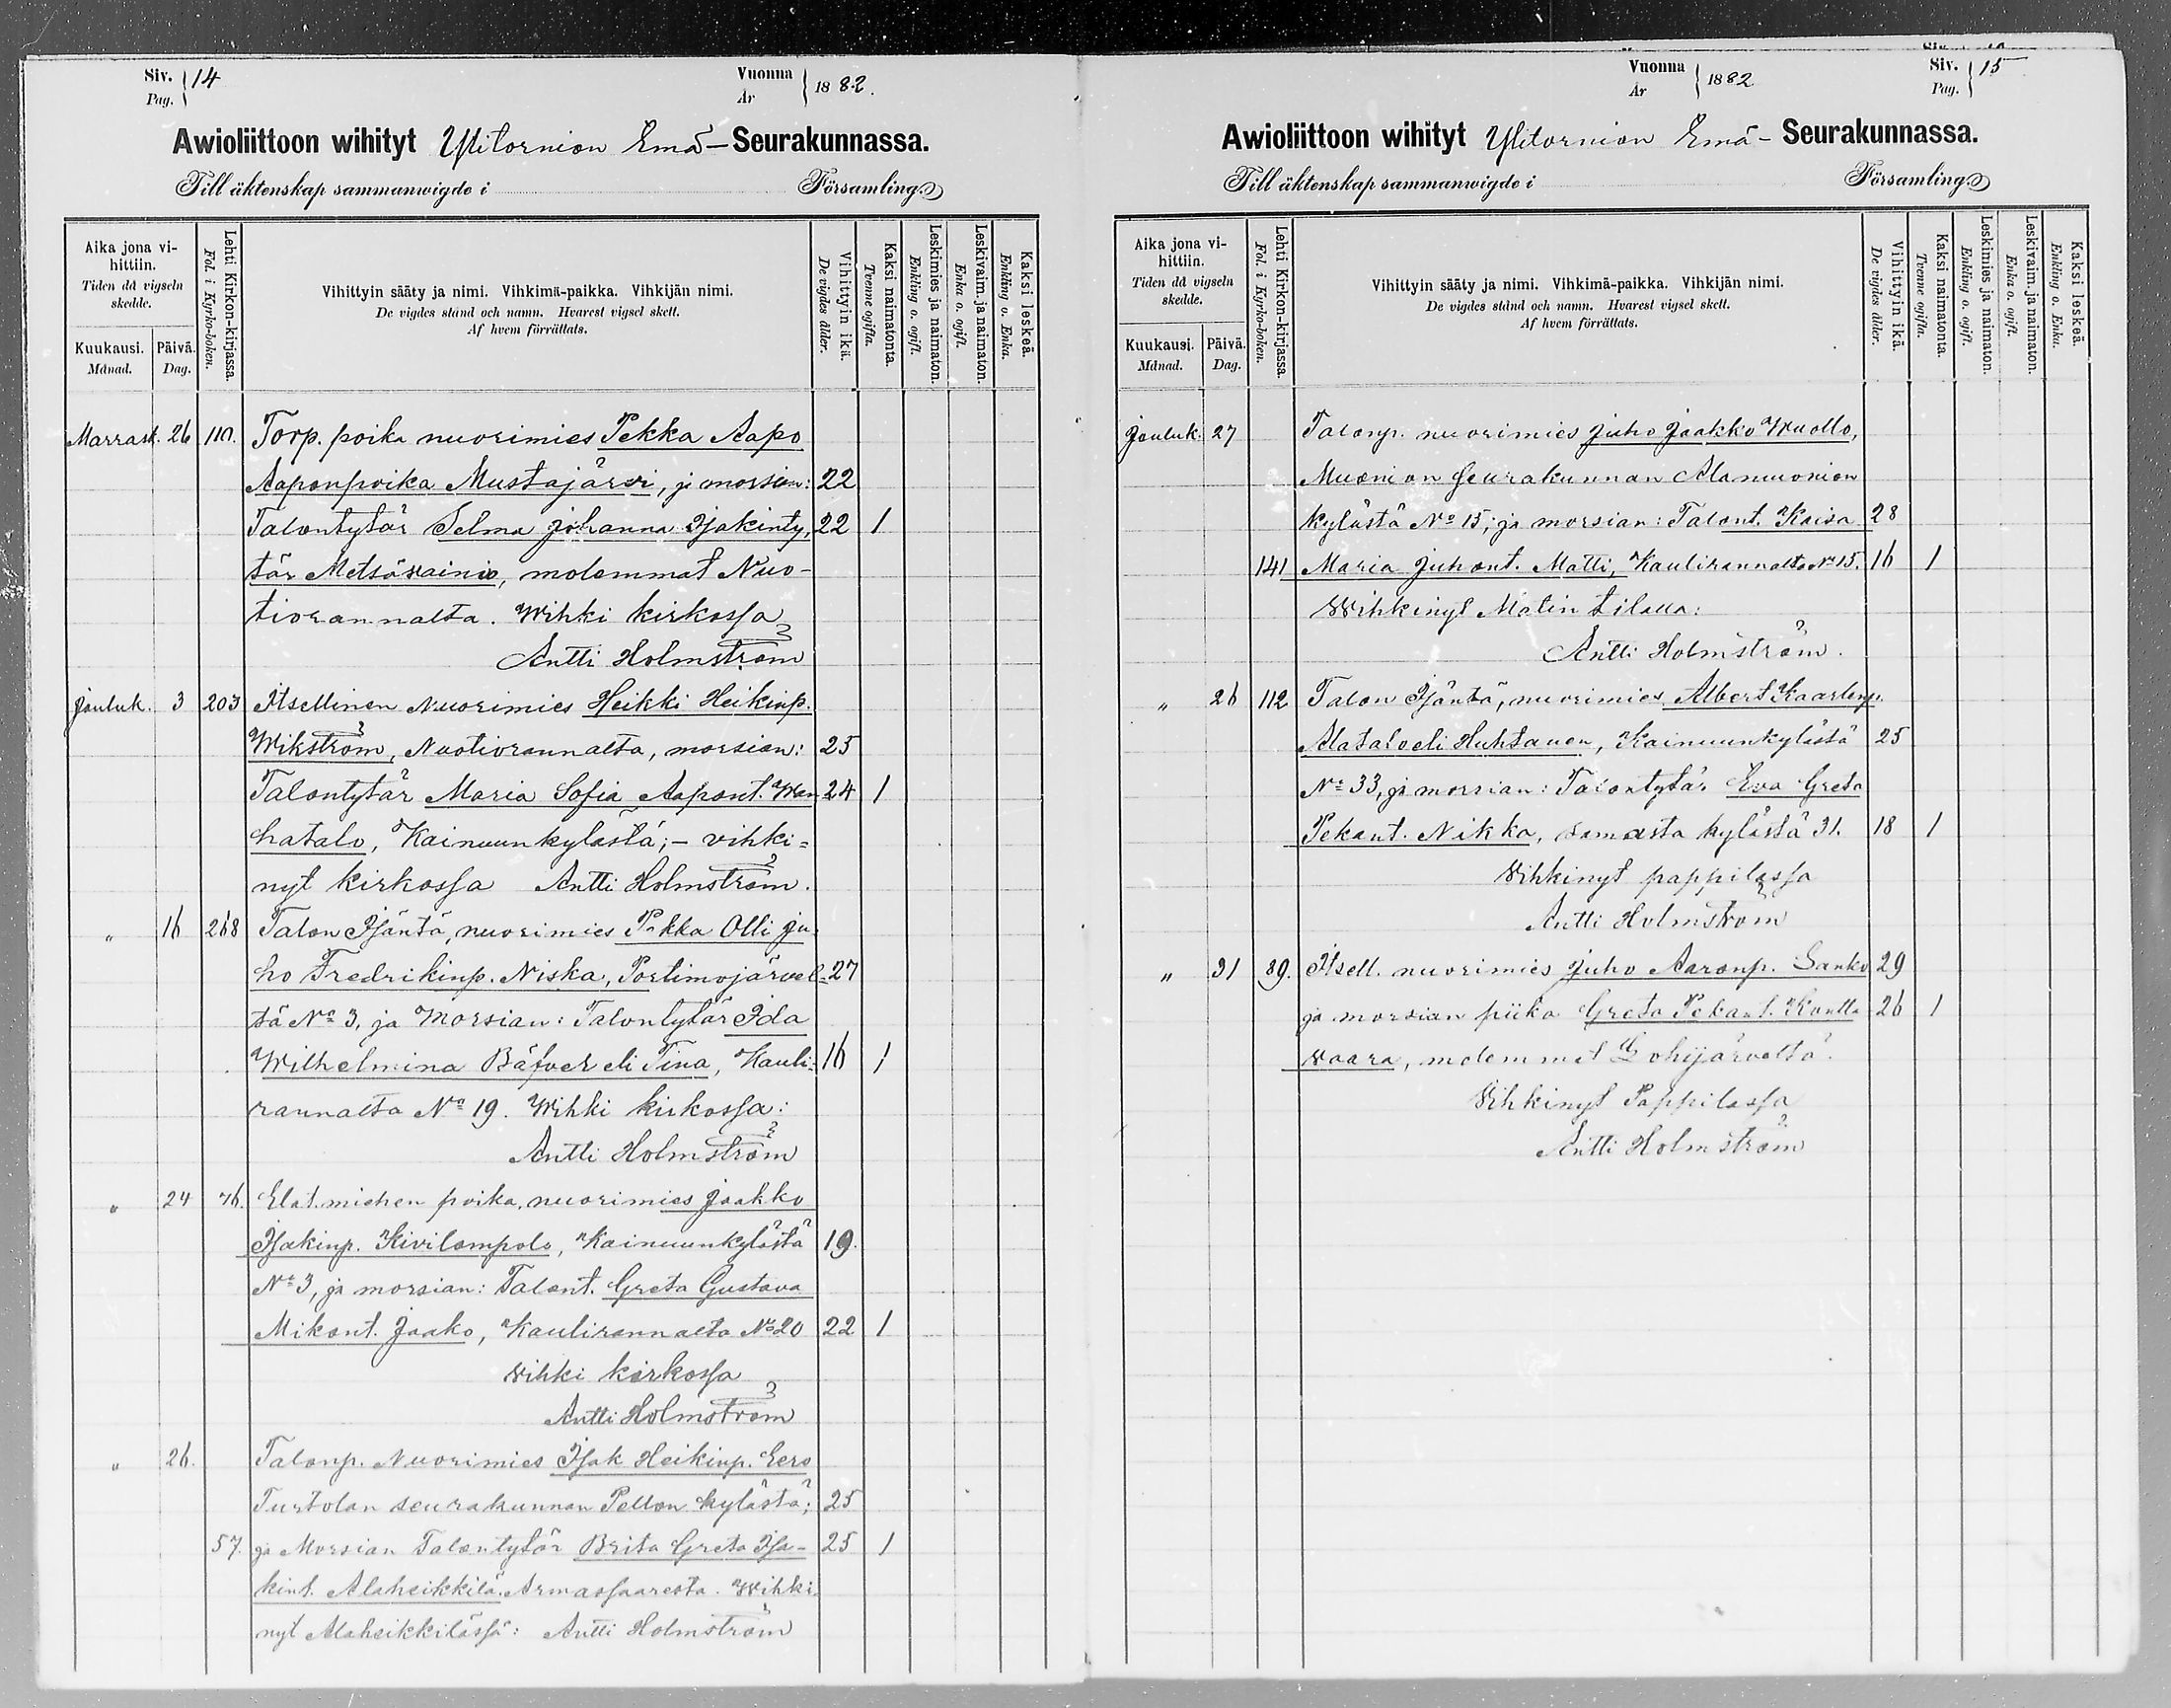 Siv. 14
Pag.
Vuonna 1882.
År
Awioliittoon wihityt Ylitornion Emä- Seurakunnassa.
Till äktenskap sammanwigde i Församling.
Aika jona vi-
hittiin.
Tiden då vigseln
skedde.
Kuukausi. Päivä.
Månad. Dag.
Lehti Kirkon-kirjassa.
Fol. i Kyrko-boken.
Vihittyin sääty ja nimi. Vihkimä-paikka. Vihkijän nimi.
De vigdes stånd och namn. Hvarest vigsel skett.
Af hvem förrättats.
Vihittyin ikä.
De vigdes ålder.
Kaksi naimatonta.
Tvenne ogifta.
Leskimies ja naimaton.
Enkling o. ogift.
Leskivaim. ja naimaton.
Enka o. ogift.
Kaksi leskeä.
Enkling o. Enka.
Marrask. 26 Torp. poika nuorimies Pekka Aapo
Aaponpoika Mustajärvi, ja morsian: 22
Talontytär Selma Johanna Isakinty, 22 1
tär Metsävainio, molemmat Nuo-
tiorannalta. Wihki kirkossa
Antti Holmström
Jouluk. 3 203 Itsellinen Nuorimies Heikki Heikinp.
Wikström, Nuotiorannalta, morsian: 25
Talontytär Maria Sofia Aapont. Wan 24 1
hatalo, Kainuunkylästä; – vihki=
nyt kirkossa Antti Holmström.
" 16 268 Talon Isäntä, nuorimies Pekka Olli Ju-
ho Fredrikinp. Niska, Portimojärvel- 27
tä No 3, ja Morsian: Talontytär Ida
Wilhelmina Bäfver eli Tina, Kauli- 16 1
rannalta No 19. Wihki kirkossa:
Antti Holmström
" 24 76. Elat.miehen poika, nuorimies Jaakko
Isakinp. Kivilompolo, Kainuunkylästä 19.
No 3, ja morsian: Talont. Greta Gustava
Mikont. Jaako, Kaulirannalta No 20 22 1
wihki kirkossa
Antti Holmström
" 26. Talonp. Nuorimies Isak Heikinp. Eero
Turtolan seurakunnan Pellon kylästä; 25
57. ja Morsian Talontytär Brita Greta Isa- 25 1
kint. Alaheikkilä, Armassaaresta. Wihki
nyt Alaheikkilässä: Antti Holmström
Vuonna 1882
År
Siv. 15
Pag.
Awioliittoon wihityt Ylitornion Emä- Seurakunnassa.
Till äktenskap sammanwigde i Församling.
Aika jona vi-
hittiin.
Tiden då vigseln
skedde.
Kuukausi. Päivä.
Månad. Dag.
Lehti Kirkon-kirjassa.
Fol. i Kyrko-boken.
Vihittyin sääty ja nimi. Vihkimä-paikka. Vihkijän nimi.
De vigdes stånd och namn. Hvarest vigsel skett.
Af hvem förrättats.
Vihittyin ikä.
De vigdes ålder.
Kaksi naimatonta.
Tvenne ogifta.
Leskimies ja naimaton.
Enkling o. ogift.
Leskivaim. ja naimaton.
Enka o. ogift.
Kaksi leskeä.
Enkling o. Enka.
Jouluk. 27 Talonp. nuorimies Juho Jaakko Wuollo,
Muonion Seurakunnan Alamuonion
kylästä No 15; ja morsian: Talont. Kaisa 28
141 Maria Juhont. Matti, Kaulirannalta No 15. 16 1
Wihkinyt Matin tilalla:
Antti Holmström.
" 26 112 Talon Isäntä, nuorimies Albert Kaarlenp.
Alatalo eli Huhtanen, Kainuunkylästä 25
No 33, ja morsian: Talontytär Eva Greta
Pekant. Nikka, samasta kylästä 31. 18 1
Wihkinyt pappilassa
Antti Holmström
" 31 89. Itsell. nuorimies Juho Aaronp. Lanko 29
ja morsian piika Greta Pekant. 26 1
waara, molemmat Lohijärveltä.
Wihkinyt Pappilassa
Antti Holmström